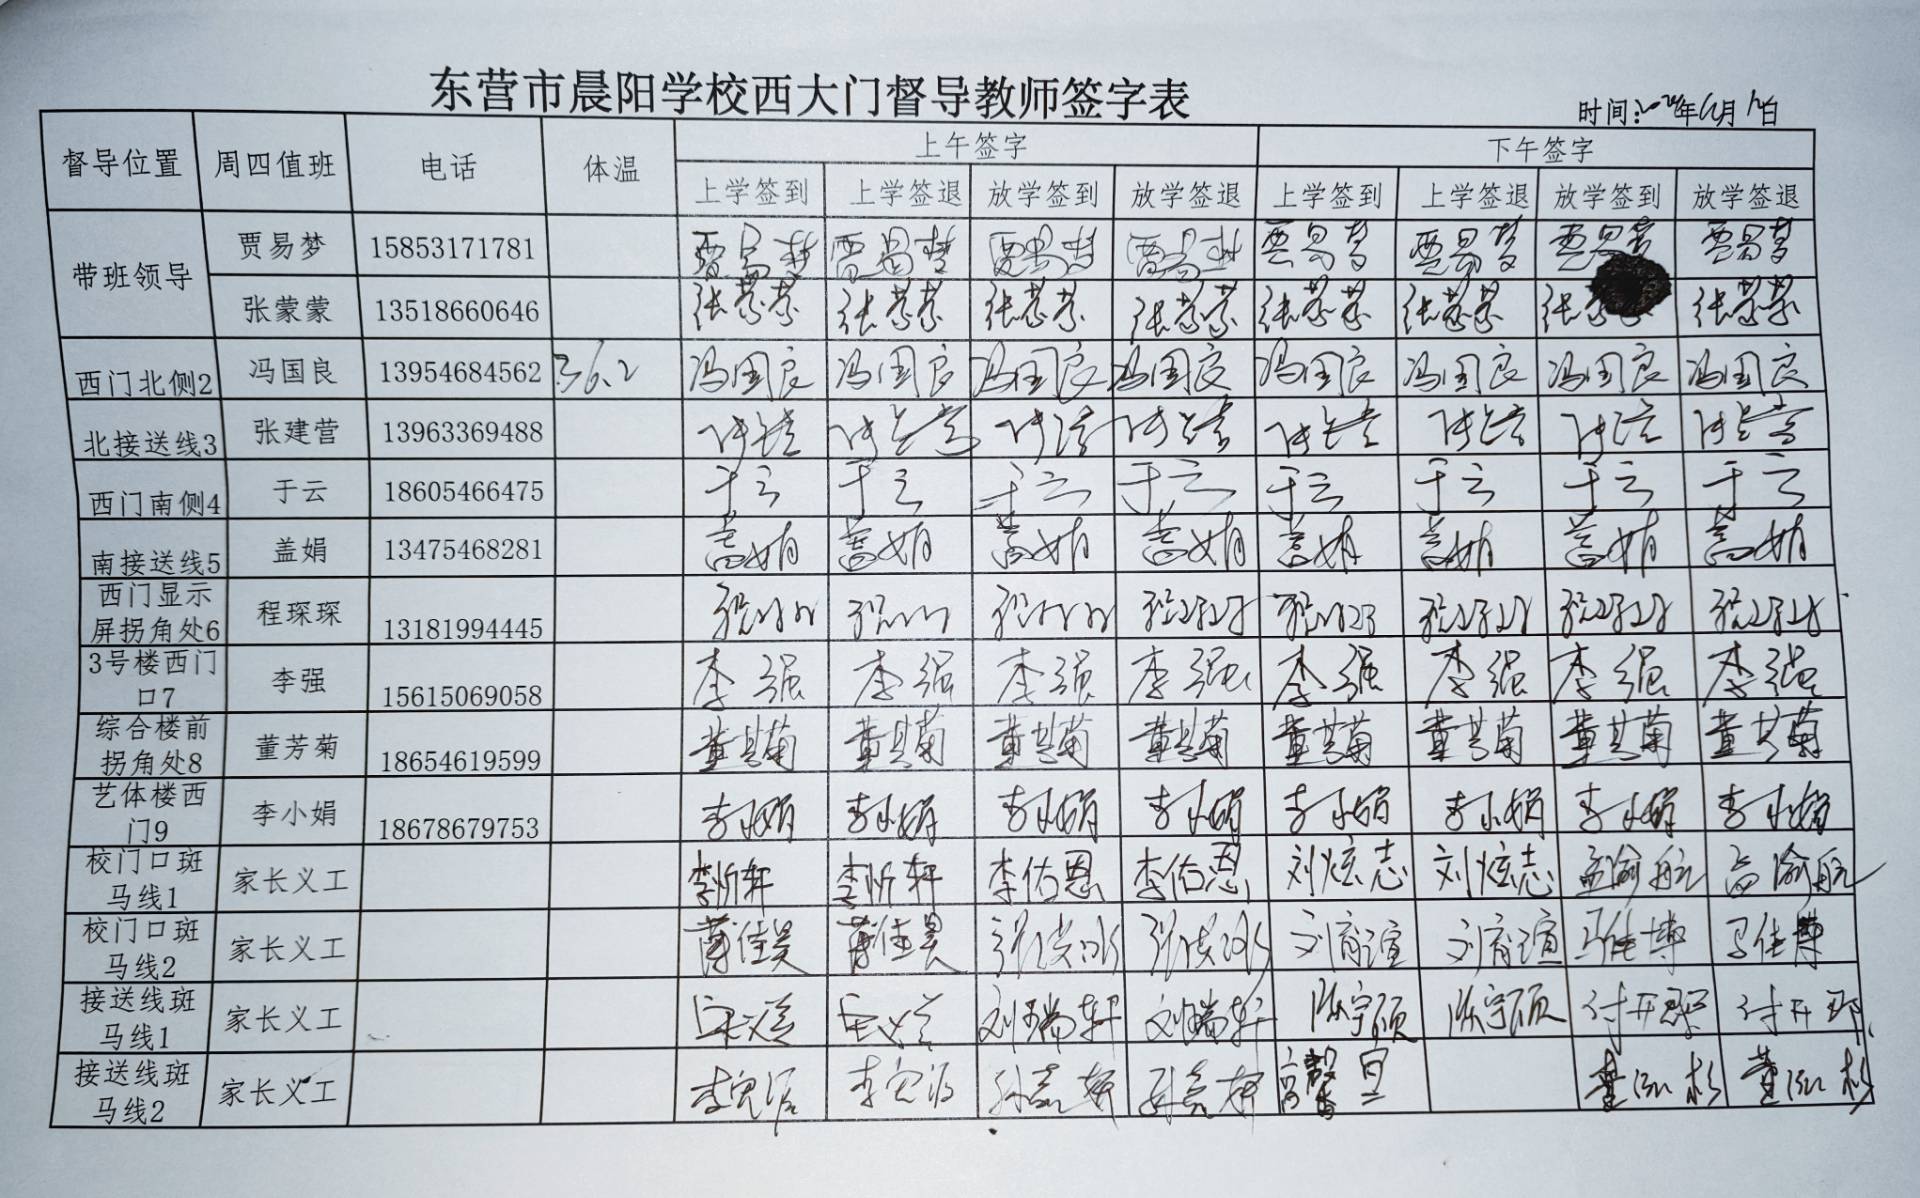 东营市晨阳学校西大门督导教师签字表
时间: 年 月 日
督导位置 周四值班 电话 体温 上午签字 下午签字
上学签到 上学签退 放学签到 放学签退 上学签到 上学签退 放学签到 放学签退
带班领导 贾易梦 15853171781 贾易梦 贾易梦 贾易梦 贾易梦 贾易梦 贾易梦 贾易梦 贾易梦
张蒙蒙 13518660646 张蒙蒙 张蒙蒙 张蒙蒙 张蒙蒙 张蒙蒙 张蒙蒙 张蒙蒙 张蒙蒙
西门北侧2 冯国良 13954684562 36.2 冯国良 冯国良 冯国良 冯国良 冯国良 冯国良 冯国良 冯国良
北接送线3 张建营 13963369488 张建营 张建营 张建营 张建营 张建营 张建营 张建营 张建营
西门南侧4 于云 18605466475 于云 于云 于云 于云 于云 于云 于云 于云
南接送线5 盖娟 13475468281 盖娟 盖娟 盖娟 盖娟 盖娟 盖娟 盖娟 盖娟
西门显示
屏拐角处6 程琛琛 13181994445 程琛琛 程琛琛 程琛琛 程琛琛 程琛琛 程琛琛 程琛琛 程琛琛
3号楼西门
口7 李强 15615069058 李强 李强 李强 李强 李强 李强 李强 李强
综合楼前
拐角处8 董芳菊 18654619599 董芳菊 董芳菊 董芳菊 董芳菊 董芳菊 董芳菊 董芳菊 董芳菊
艺体楼西
门9 李小娟 18678679753 李小娟 李小娟 李小娟 李小娟 李小娟 李小娟 李小娟 李小娟
校门口斑
马线1 家长义工 李昕轩 李昕轩 李佑恩 李佑恩 刘炫志 刘炫志
校门口斑
马线2 家长义工 薄佳昊 薄佳昊 刘育谊 刘育谊 马佳博 马佳博
接送线斑
马线1 家长义工 刘瑞轩 刘瑞轩 陈宇硕 陈宇硕
接送线斑
马线2 家长义工